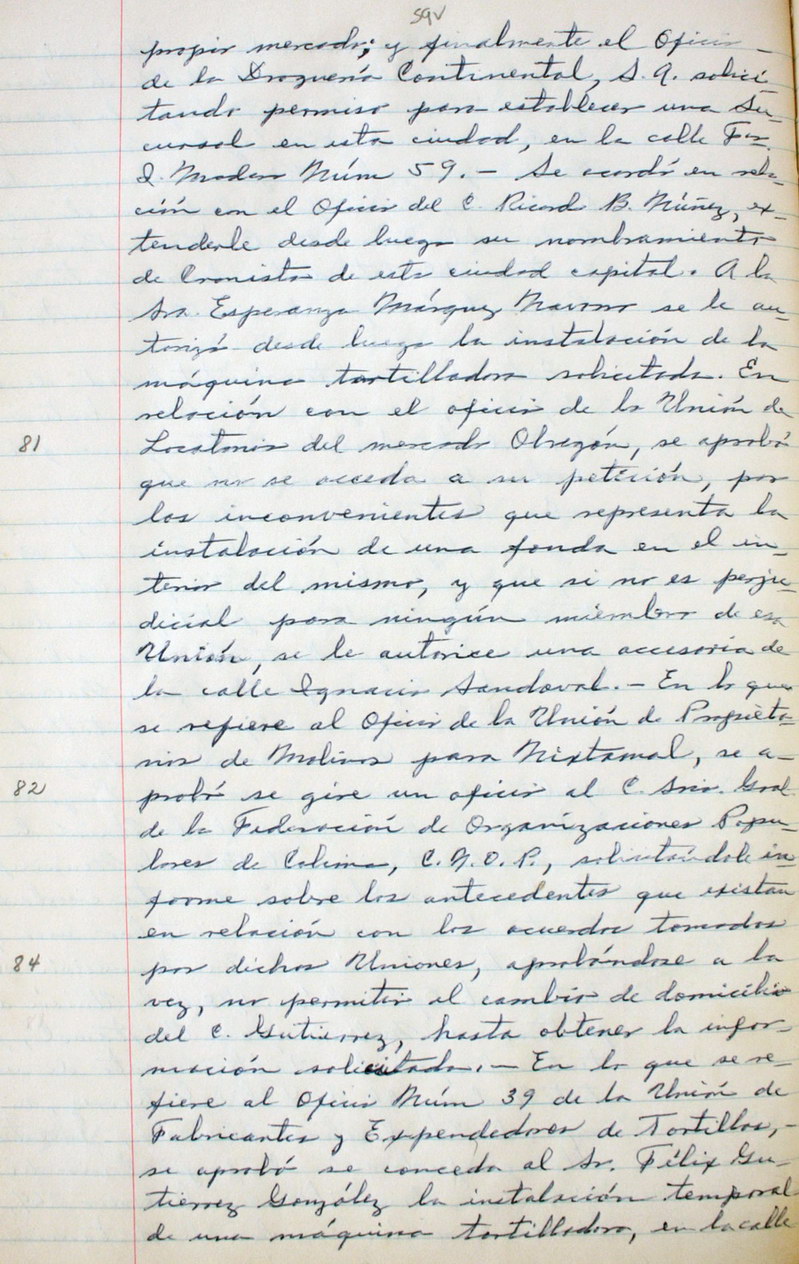 propio mercado; y finalmente el Oficio
de la Droguería Continental, S. A. solici-
tando permiso para establecer una Su-
cursal en esta ciudad, en la calle Fco.
I. Madero Núm 59.- Se acordó en rela-
ción con el Oficio del C. Ricard B. Núñez, ex-
tenderle desde luego su nombramiento
de Cronista de esta ciudad capital. A la
Sra. Esperanza Márquez Navarro se le au-
torizó desde luego la instalación de la
máquina tortilladora solicitada. En
relación con el oficio de la Unión de
81
Locatarios del mercado Obregón, se aprobó
que no se acceda a su petición, por
los inconvenientes que representa la
instalación de una fonda en el in-
terior del mismo, y que si no es perju-
dicial para ningún miembro de esa
Unión, se le autorice una accesoria de
la calle Ignacio Sandoval.- En lo que
se refiere al Oficio de la Unión de Propieta-
rios de Molinos para Nixtamal, se a-
82
probó se gire un oficio al C. Srio. Gral.
de la Federación de Organizaciones Popu-
lares de Colima, C.N.O.P., solicitándole in-
forme sobre los antecedentes que existan
en relación con los acuerdos tomados
84
por dichas Uniones, aprobándose a la
vez, no permitir el cambio de domicilio
del C. Gutiérrez, hasta obtener la infor-
mación solicitada.- En lo que se re-
fiere al Oficio Núm 39 de la Unión de
Fabricantes y Expendedores de Tortillas,-
se aprobó se conceda al Sr. Félix Gu-
tiérrez González la instalación temporal
de una máquina tortilladora, en la calle